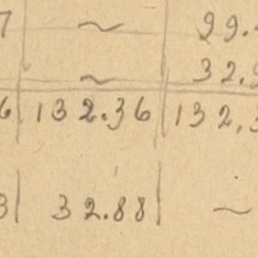 7 ~ 99.
~ 32.
6 132.36 132.3
3 32.88 ~